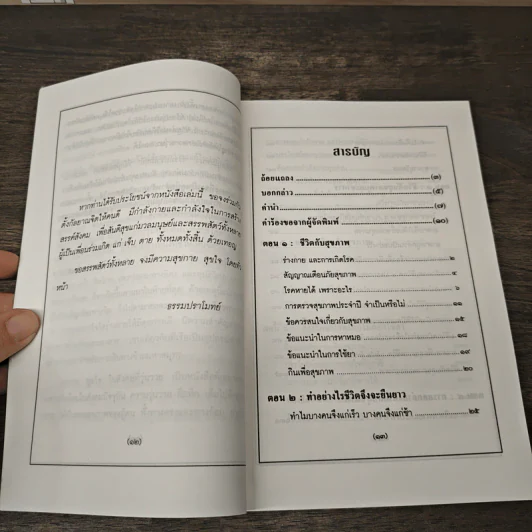 หากท่านได้รับประโยชน์จากหนังสือเล่มนี้ ขอจงร่วมกัน
ตั้งกัลยาณจิตให้คนดี มีกำลังกายและกำลังใจในการสร้าง
สรรค์สังคม เพื่อสันติสุขแก่มวลมนุษย์และสรรพสัตว์ทั้งหลาย
ผู้เป็นเพื่อนร่วมเกิด แก่ เจ็บ ตาย ทั้งหมดทั้งสิ้น ด้วยเทอญ
ขอสรรพสัตว์ทั้งหลาย จงมีความสุขกาย สุขใจ โดยทั่ว
หน้า
ธรรมปราโมทย์
(๑๒)
สารบัญ
ถ้อยแถลง (๓)
บอกกล่าว (๕)
คำนำ (๗)
คำร้องขอจากผู้จัดพิมพ์ (๑๐)
ตอน ๑ : ชีวิตกับสุขภาพ
ร่างกาย และการเกิดโรค ๒
สัญญาณเตือนภัยสุขภาพ ๔
โรคหายได้ เพราะอะไร ๖
การตรวจสุขภาพประจำปี จำเป็นหรือไม่ ๑๑
ข้อควรสนใจเกี่ยวกับสุขภาพ ๑๕
ข้อแนะนำในการหาหมอ ๑๘
ข้อแนะนำในการใช้ยา ๑๙
กินเพื่อสุขภาพ ๒๐
ตอน ๒ : ทำอย่างไรชีวิตจึงจะยืนยาว
ทำไมบางคนจึงแก่เร็ว บางคนจึงแก่ช้า ๒๕
(๑๓)